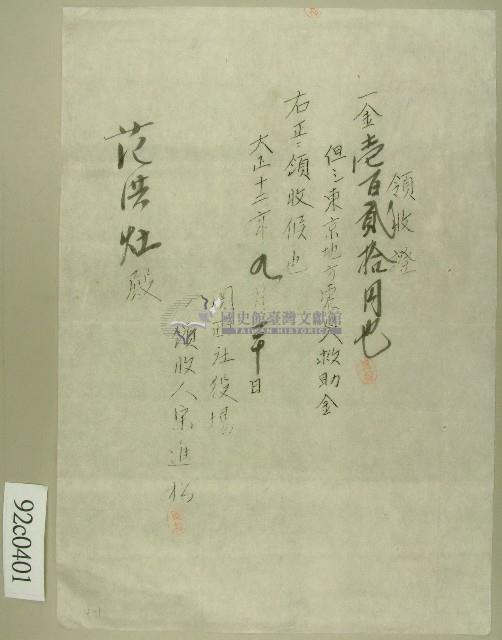 領收證
一金壱百貳拾円也
但シ東京地方震災救助金
右正ニ領收候也
大正十二年九月二十日
社役場
領收人 進松
范洪灶殿
國史館臺灣文獻館
TAIWAN HISTORICA
92c0401